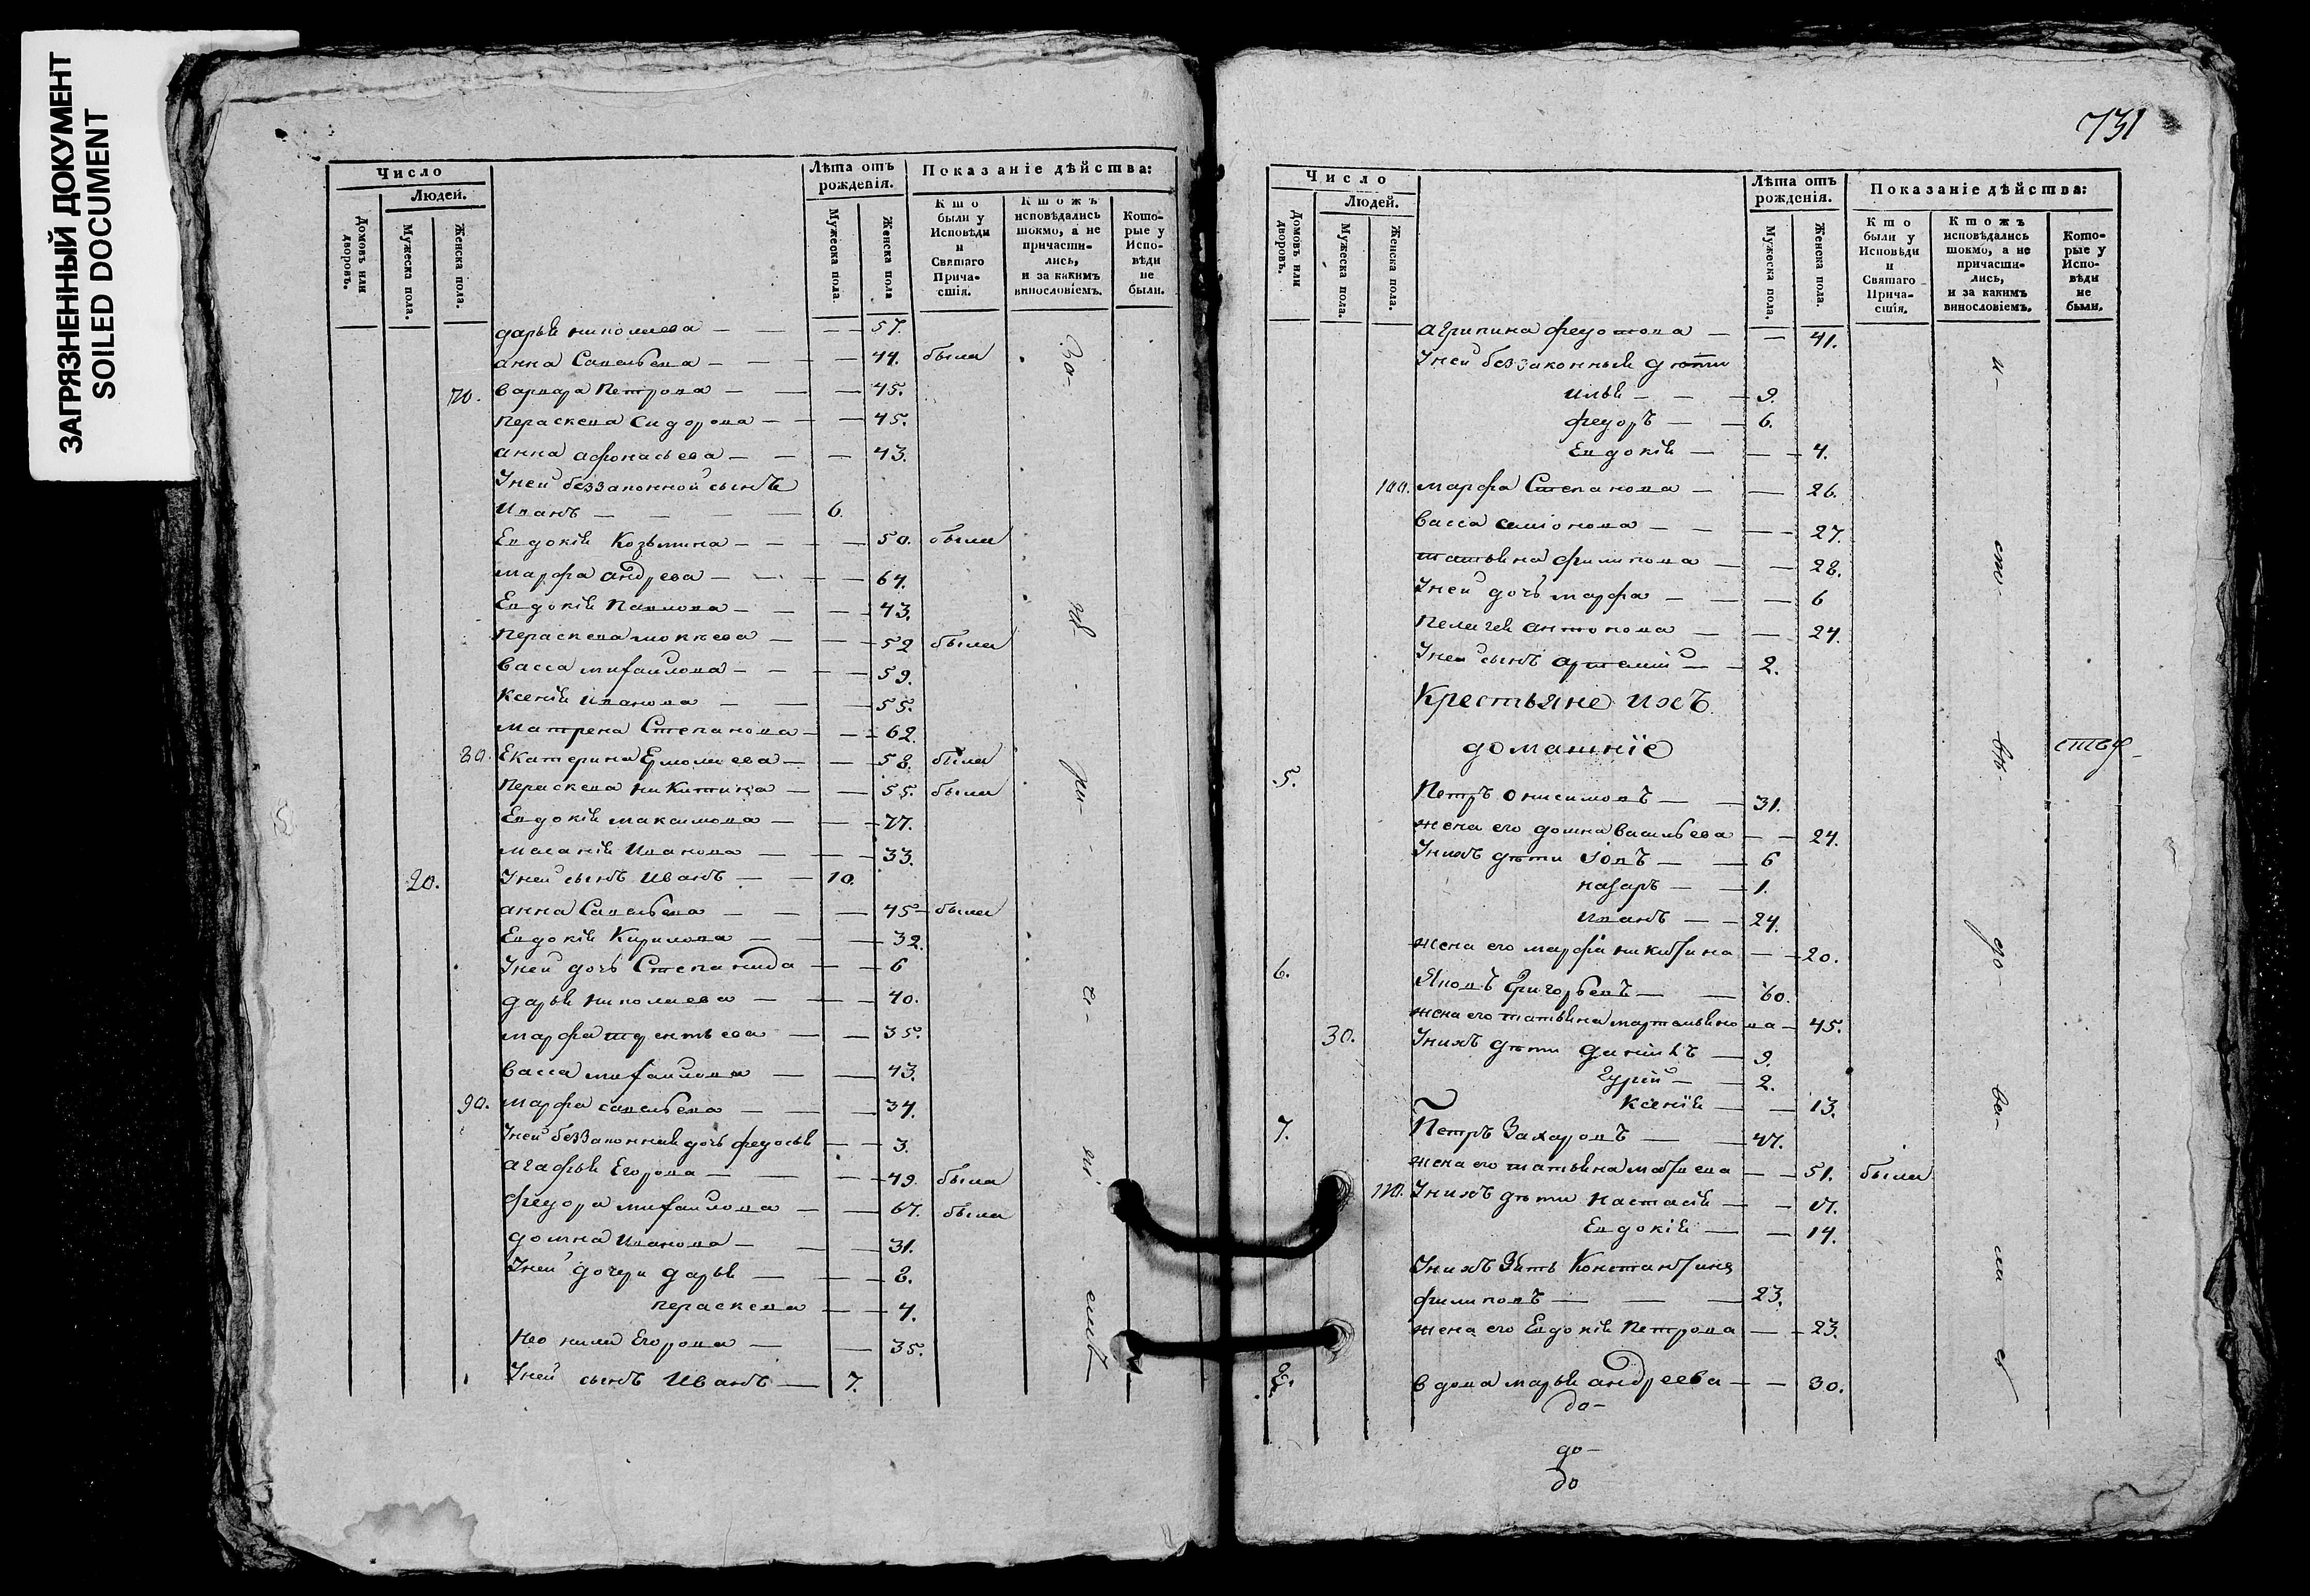 ЗАГРЯЗНЕННЫЙ ДОКУМЕНТ
SOILED DOCUMENT
Число
Людей.
Домовъ или дворовъ.
Мужеска пола.
Женска пола.
Лѣта отъ рожденія.
Мужеска пола.
Женска пола
Показаніе дѣйства:
Кто были у Исповѣди и Святаго Прича-стія.
Ктожъ исповѣдались токмо, а не причасти-лись, и за какимъ винословіемъ.
Кото-рые у Испо-вѣди не были.
дарья николаева — — — — 57.
анна Савельева — — — — 44. была
70. варвара Петрова — — — 45.
Параскева Сидорова — — — 45.
анна афонасьева — — — 43.
Уней беззаконной сынъ
Иванъ — — — — 6.
Евдокія Козьмина — — — 50. была
марфа андрева — — — — 64.
Евдокія Павлова — — — 43.
Параскева мокеева — — — 52 была
васса михаилова — — — 59.
Ксенія Иванова — — — 55.
матрена Степанова — — — 62.
80. Екатерина Ермолаева — — — 58. была
Параскева никитина — — — 55. была
Евдокія максимова — — — 77.
маланія Иванова — — — 33.
20. Уней сынъ Иванъ — — — 10.
анна Савельева — — — 45 — была
Евдокія Кирилова — — — 32.
Уней дочь Степанида — — 6
дарья николаева — — — 40.
марфа терентьева — — 35.
васса михаилова — — 43.
90. марфа савельева — — — 34.
Уней беззаконная дочь федосья — — 3.
агафья Егорова — — — 49. была
федора михаилова — — 67. была
домна Иванова — — — 31.
Уней дочери дарья — — — 8.
параскева — — 4.
неонила Егорова — — 35.
Уней сынъ Иванъ — 7.
За-
ни-
ем-
731
Число
Людей.
Домовъ или дворовъ.
Мужеска пола.
Женска пола.
Лѣта отъ рожденія.
Мужеска пола.
Женска пола.
Показаніе дѣйства:
Кто были у Исповѣди и Святаго Прича-стія.
Ктожъ исповѣдались токмо, а не причасти-лись, и за какимъ винословіемъ.
Кото-рые у Испо-вѣди не были.
агрипина федотова — — 41.
Уней беззаконныя дѣти
илья — — — 9.
федоръ — — 6.
Евдокія — — — 4.
100. марфа Степанова — — 26.
васса симіонова — — — 27.
татьяна филипова — — 28.
Уней дочь марфа — — — 6
Пелагея антонова — — 24.
Уней сынъ артемій — — 2.
Крестьяне ихъ
домашніе
5.
Петръ онисимовъ — — 31.
жена его домна васильева — — 24.
Унихъ дѣти Іовъ — — 6
назаръ — — 1.
Иванъ — — 24.
жена его марфа никитина — — 20.
6.
Яковъ Григорьевъ — — 60.
жена его татьяна мартемьянова — 45.
30. Унихъ дѣти даніилъ — 9.
Гурій — — 2.
Ксенія — — 13.
7. Петръ Захаровъ — — 47.
жена его татьяна матвѣева — — 51. была
110. Унихъ дѣти настасія — — 17.
Евдокія — — 14.
Унихъ Зять Константинъ
филиповъ — — — 23.
жена его Евдокія Петрова — — 23.
8. вдова марья андреева — — 30.
да-
до-
до
и-
спо-
вѣ-
до-
ва-